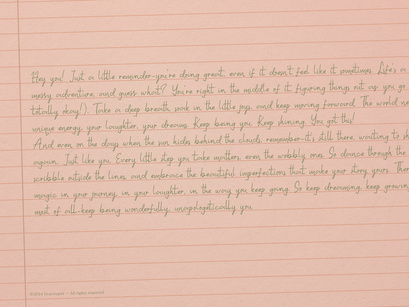 Hey you! Just a little reminder-you're doing great, even if it doesn't feel like it sometimes. Life's a
messy adventure, and guess what? You're right in the middle of it, figuring things out as you go
totally okay!). Take a deep breath, soak in the little joys, and keep moving forward. The world ne
unique energy, your laughter, your dreams. Keep being you. Keep shining. You got this!
And even on the days when the sun hides behind the clouds, remember-it's still there, waiting to sh
again. Just like you. Every little step you take matters, even the wobbly ones. So dance through the
scribble outside the lines, and embrace the beautiful imperfections that make your story yours. Ther
magic in your journey, in your laughter, in the way you keep going. So keep dreaming, keep growin
most of all-keep being wonderfully, unapologetically you.
All rights reserved